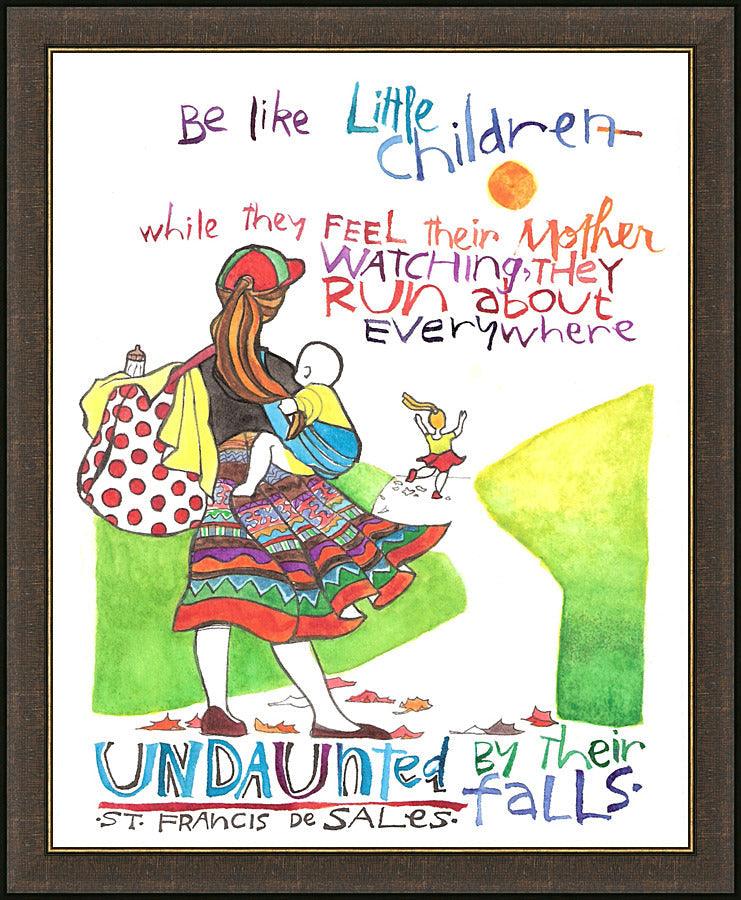 Be like Little
Children
while they FEEL their Mother
WATCHing, THEY
RUN about
EVERYwhere
UNDAUnted by their
falls.
·ST. FRANCIS De SALes·